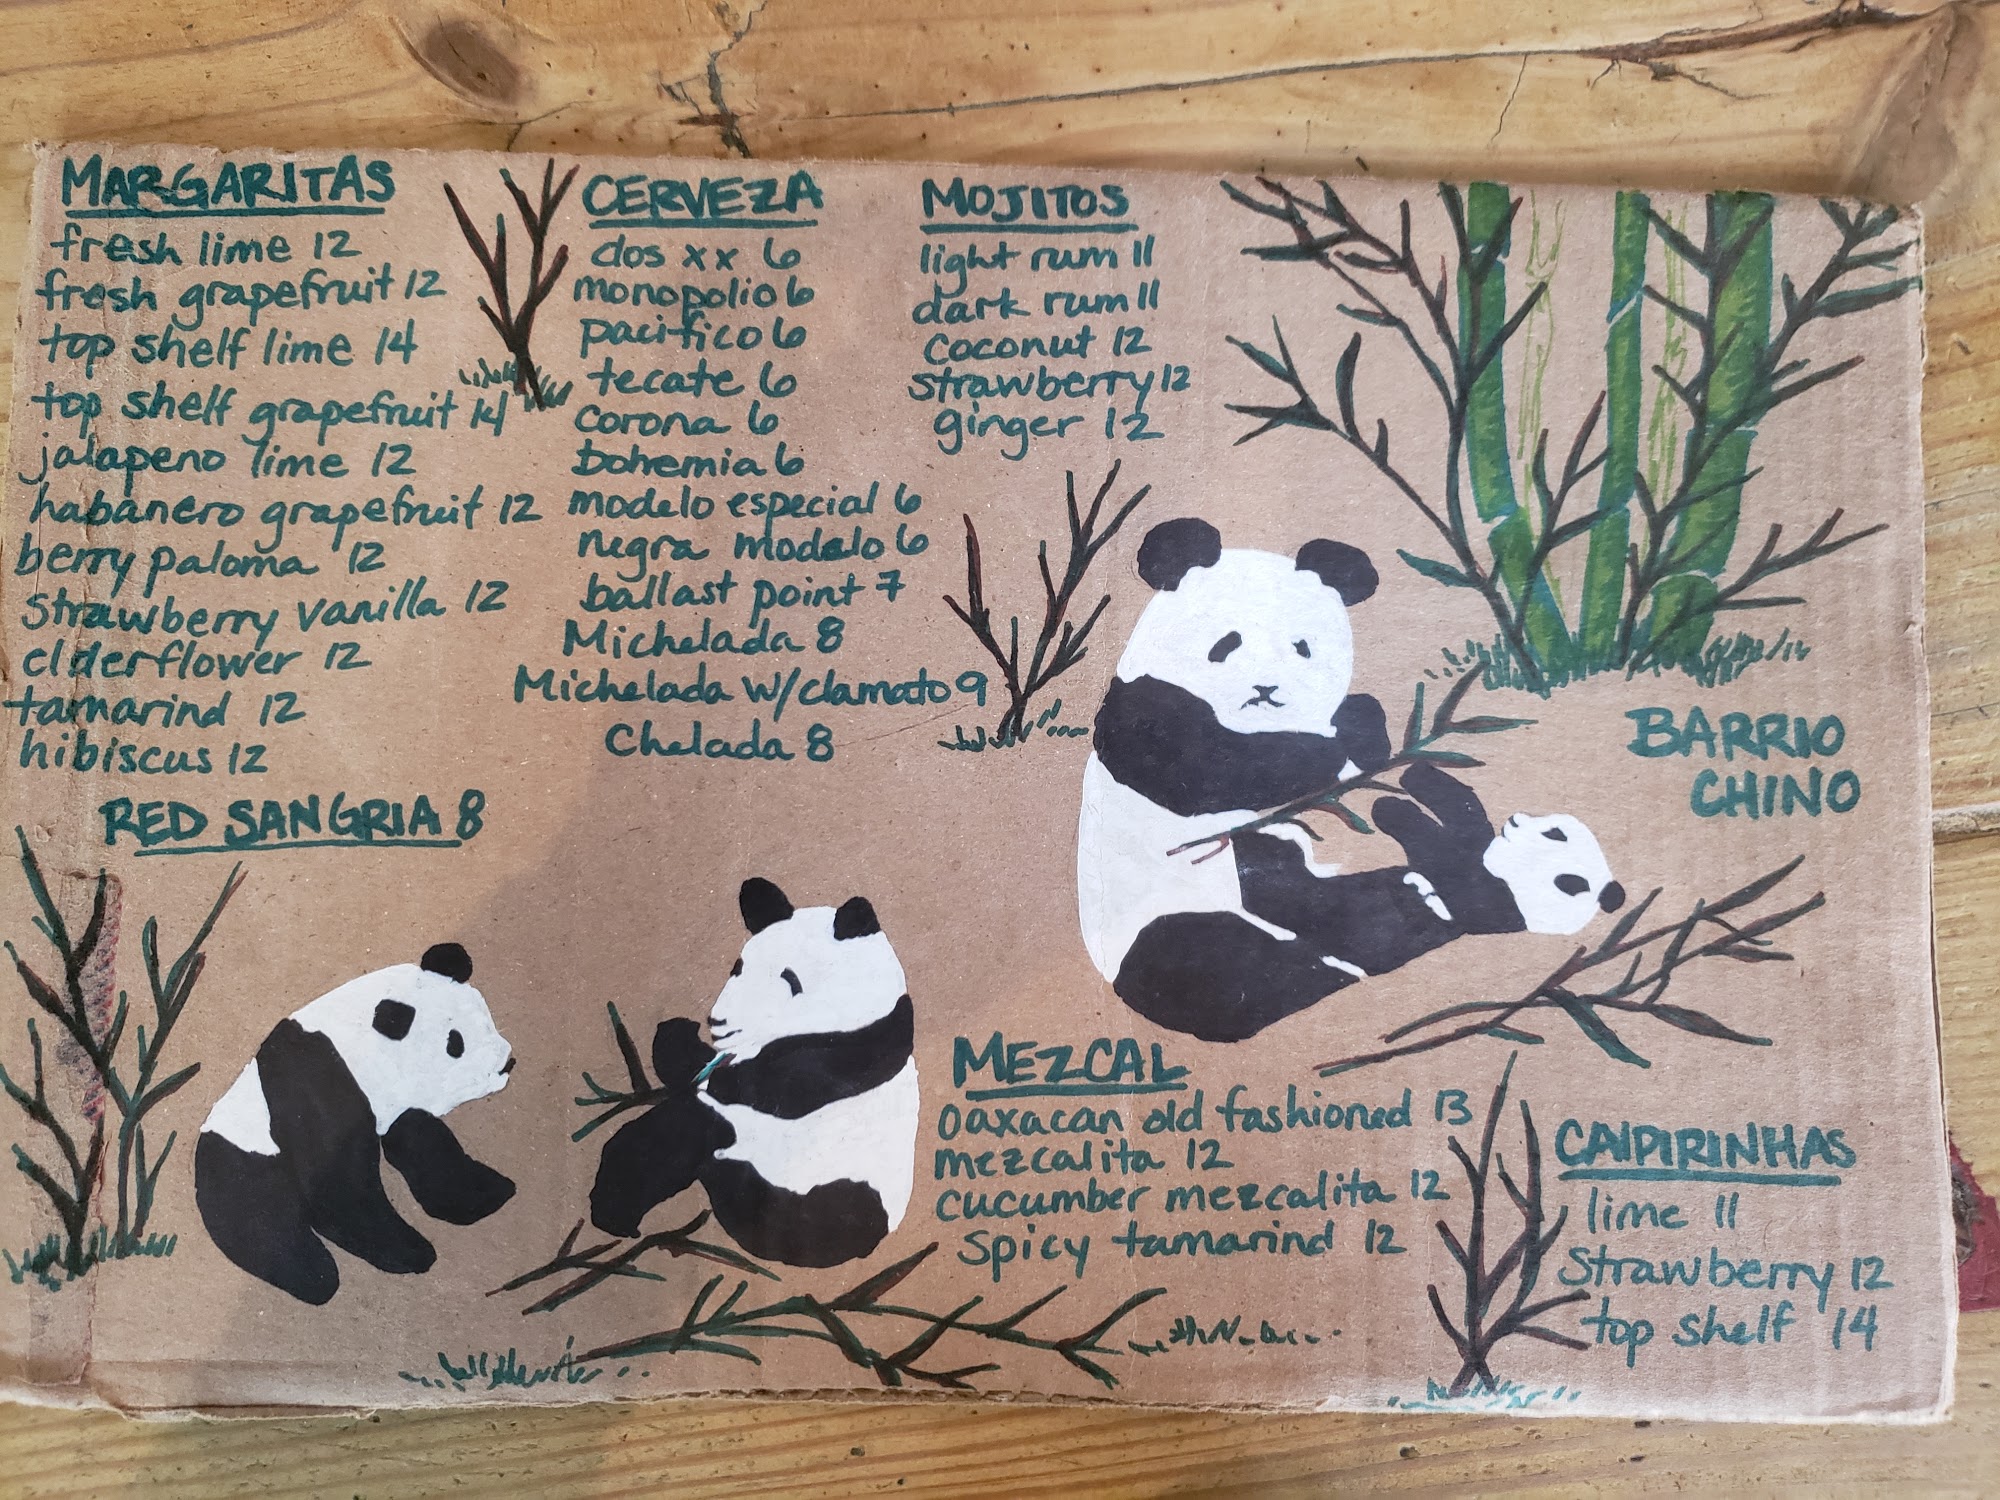 MARGARITAS
fresh lime 12
fresh grapefruit 12
top shelf lime 14
top shelf grapefruit 14
jalapeno lime 12
habanero grapefruit 12
berry paloma 12
strawberry vanilla 12
elderflower 12
tamarind 12
hibiscus 12
RED SANGRIA 8
CERVEZA
dos xx 6
monopolio 6
pacifico 6
tecate 6
corona 6
bohemia 6
modelo especial 6
negra modelo 6
ballast point 7
Michelada 8
Michelada w/clamato 9
Chelada 8
MOJITOS
light rum 11
dark rum 11
coconut 12
strawberry 12
ginger 12
BARRIO
CHINO
MEZCAL
oaxacan old fashioned 13
mezcalita 12
cucumber mezcalita 12
spicy tamarind 12
CAIPIRINHAS
lime 11
strawberry 12
top shelf 14